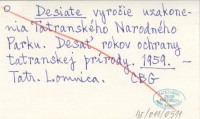 Desiate vyročie uzakone-
nia Tatranského Národného
Parku. Desať rokov ochrany
tatranskej prírody. 1959. –
Tatr. Lomnica. CBG